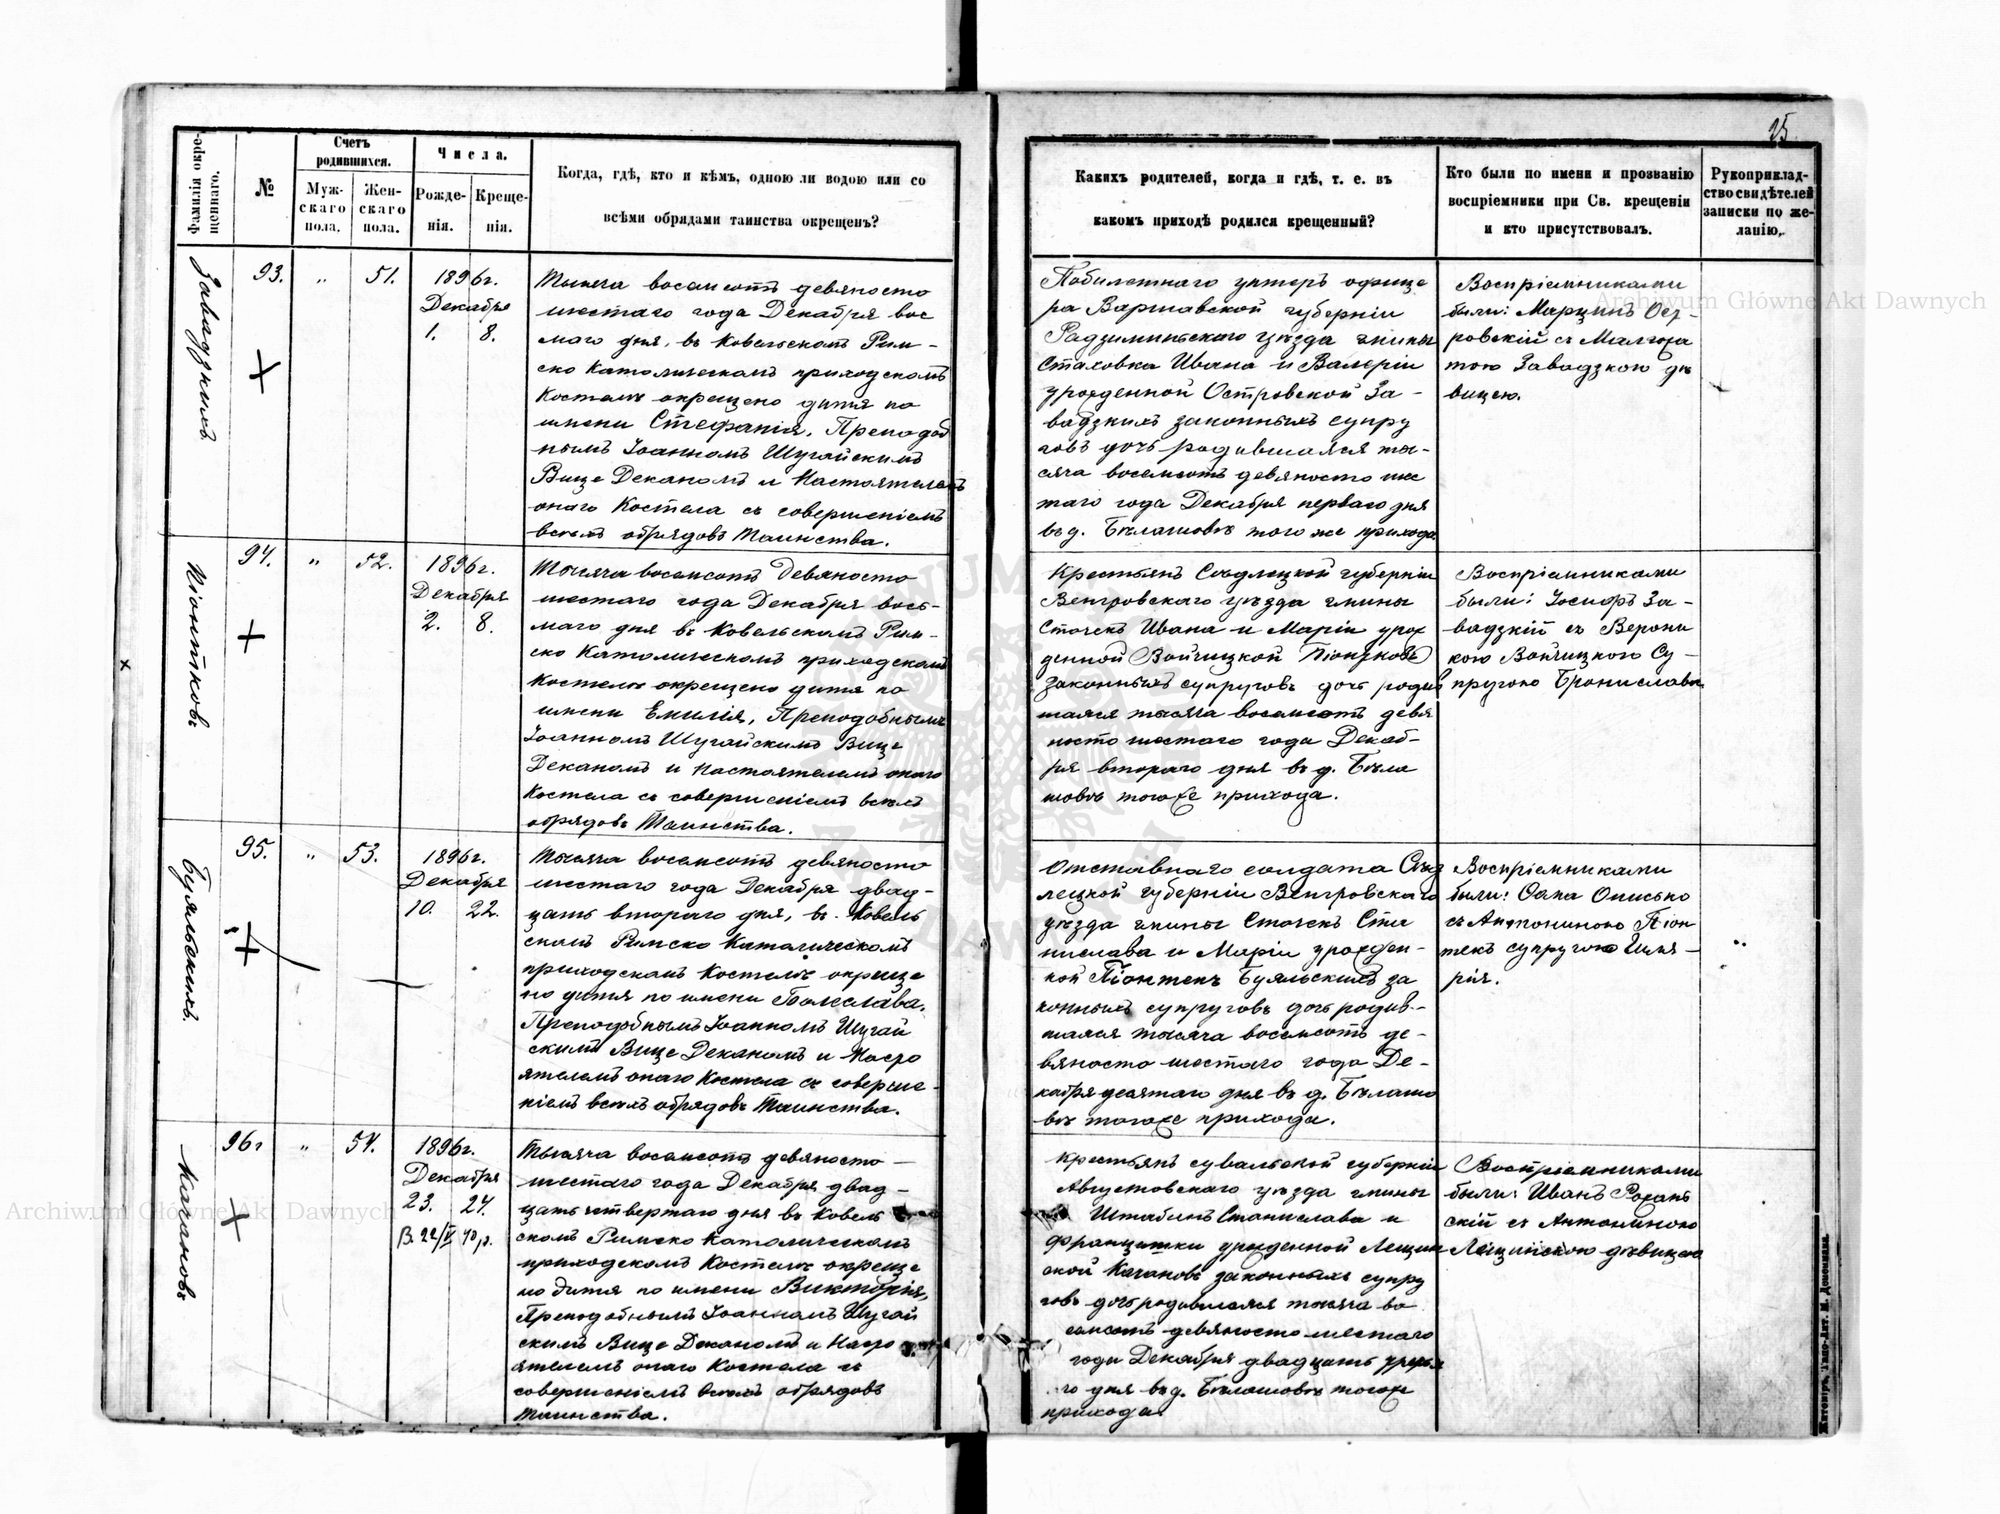 25
Фамилія окре-
щеннаго.
№
Счетъ
родившихся.
Муж-
скаго
пола.
Жен-
скаго
пола.
Числа.
Рожде-
нія.
Креще-
нія.
Когда, гдѣ, кто и кѣмъ, одною ли водою или со
всѣми обрядами таинства окрещенъ?
Какихъ родителей, когда и гдѣ, т. е. въ
какомъ приходѣ родился крещенный?
Кто были по имени и прозванію
воспріемники при Св. крещеніи
и кто присутствовалъ.
Рукоприклад-
ство свидѣтелей
записки по же-
ланію.
Завадзкихъ
93.
"
51.
1896г.
Декабря
1. 8.
Тысяча восемсотъ девяносто
шестаго года Декабря вос
маго дня, въ Ковельскомъ Рим-
ско Католическомъ приходскомъ
Костелѣ окрещено дитя по
имени Стефанія, Преподоб
нымъ Іоанномъ Шугайскимъ
Вице Деканомъ и Настоятелемъ
онаго Костела съ совершеніемъ
всѣхъ обрядовъ Таинства.
унтеръ офице
ра Варшавской губерніи
Радзиминьскаго уѣзда гмины
Стаховка Ивана и Валеріи
урожденной Островской За-
вадзкихъ законныхъ супру
говъ дочь родившаяся ты-
сяча восемсотъ девяносто шес
таго года Декабря перваго дня
въ д. Бѣлашовѣ того же прихода
Воспріемниками
были: Марцинъ Ост-
ровскій съ Малгожа
тою Завадзкою дѣ
вицею.
Піонтковъ
94.
"
52.
1896г.
Декабря
2. 8.
Тысяча восемсотъ девяносто
шестаго года Декабря вось-
маго дня въ Ковельскомъ Рим-
ско Католическомъ приходскомъ
Костелѣ окрещено дитя по
имени Емилія, Преподобнымъ
Іоанномъ Шугайскимъ Вице
Деканомъ и Настоятелемъ онаго
Костела съ совершеніемъ всѣхъ
обрядовъ Таинства.
Крестьянъ Сѣдлецкой губерніи
Венгровскаго уѣзда гмины
Сточекъ Ивана и Маріи урож
денной Войчицкой Піонтковъ
законныхъ супруговъ дочь родив
шаяся тысяча восемсотъ девя
носто шестаго года Декаб-
ря втораго дня въ д. Бѣла
шовѣ тогоже прихода.
Воспріемниками
были: Іосифъ За-
вадзкій съ Верони
кою Войчицкого Су-
пругою Бронислава
Буяльскихъ.
95.
"
53.
1896г.
Декабря
10. 22.
Тысяча восемсотъ девяносто
шестаго года Декабря двад-
цать втораго дня, въ Ковель
скомъ Римско Католическомъ
приходскомъ Костелѣ окреще
но дитя по имени Болеслава,
Преподобнымъ Іоанномъ Шугай
скимъ Вице Деканомъ и Насто
ятелемъ онаго Костела съ соверше-
ніемъ всѣхъ обрядовъ Таинства.
Отставнаго солдата Сѣд
лецкой губерніи Венгровскаго
уѣзда гмины Сточекъ Ста
нислава и Маріи урожден-
ной Піонтекъ Буяльскихъ за
конныхъ супруговъ дочь родив-
шаяся тысяча восемсотъ де-
вяносто шестаго года Де-
кабря десятаго дня въ д. Бѣлашо
вѣ тогоже прихода.
Воспріемниками
были: Ѳома Описько
съ Антониною Піон
текъ супругою
рія.
Качановъ
96г
"
54.
1896г.
Декабря
23. 24.
Тысяча восемсотъ девяносто-
шестаго года Декабря двад-
цать четвертаго дня въ Ковель
скомъ Римско Католическомъ
приходскомъ Костелѣ окреще
но дитя по имени Викторія,
Преподобнымъ Іоанномъ Шугай
скимъ Вице Деканомъ и Насто
ятелемъ онаго Костела съ
совершеніемъ всѣхъ обрядовъ
Таинства.
Крестьянъ сувальской губерніи
Августовскаго уѣзда гмины
Штабинъ Станислава и
Францишки урожденной Лещин
ской Качановъ законныхъ супру
говъ дочь родившаяся тысяча во
семсотъ девяносто шестаго
года Декабря двадцать третья
го дня въ д. Бѣлашовѣ тогоже
прихода.
Воспріемниками
были: Иванъ
скій съ Антониною
Лещинскою дѣвицею
Житомiръ, Типо-Лит. М. Дененмана.
Archiwum Główne Akt Dawnych
Archiwum Główne Akt Dawnych